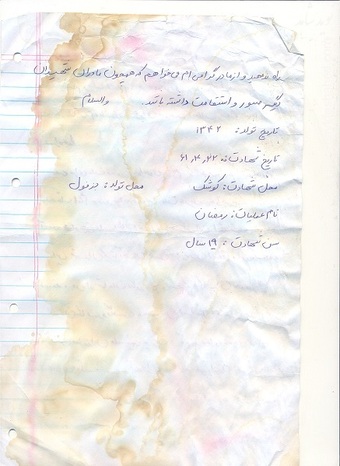 راه بدهید و از مادر گرامی ام می‌خواهم که همچون مادران شهیدان
دیگر صبور و استقامت داشته باشد. والسلام
تاریخ تولد: ۱۳۴۲
تاریخ شهادت: ۶۱,۴,۲۲
محل شهادت: کوشک محل تولد: دزفول
نام عملیات: رمضان
سن شهادت: ۱۹ سال